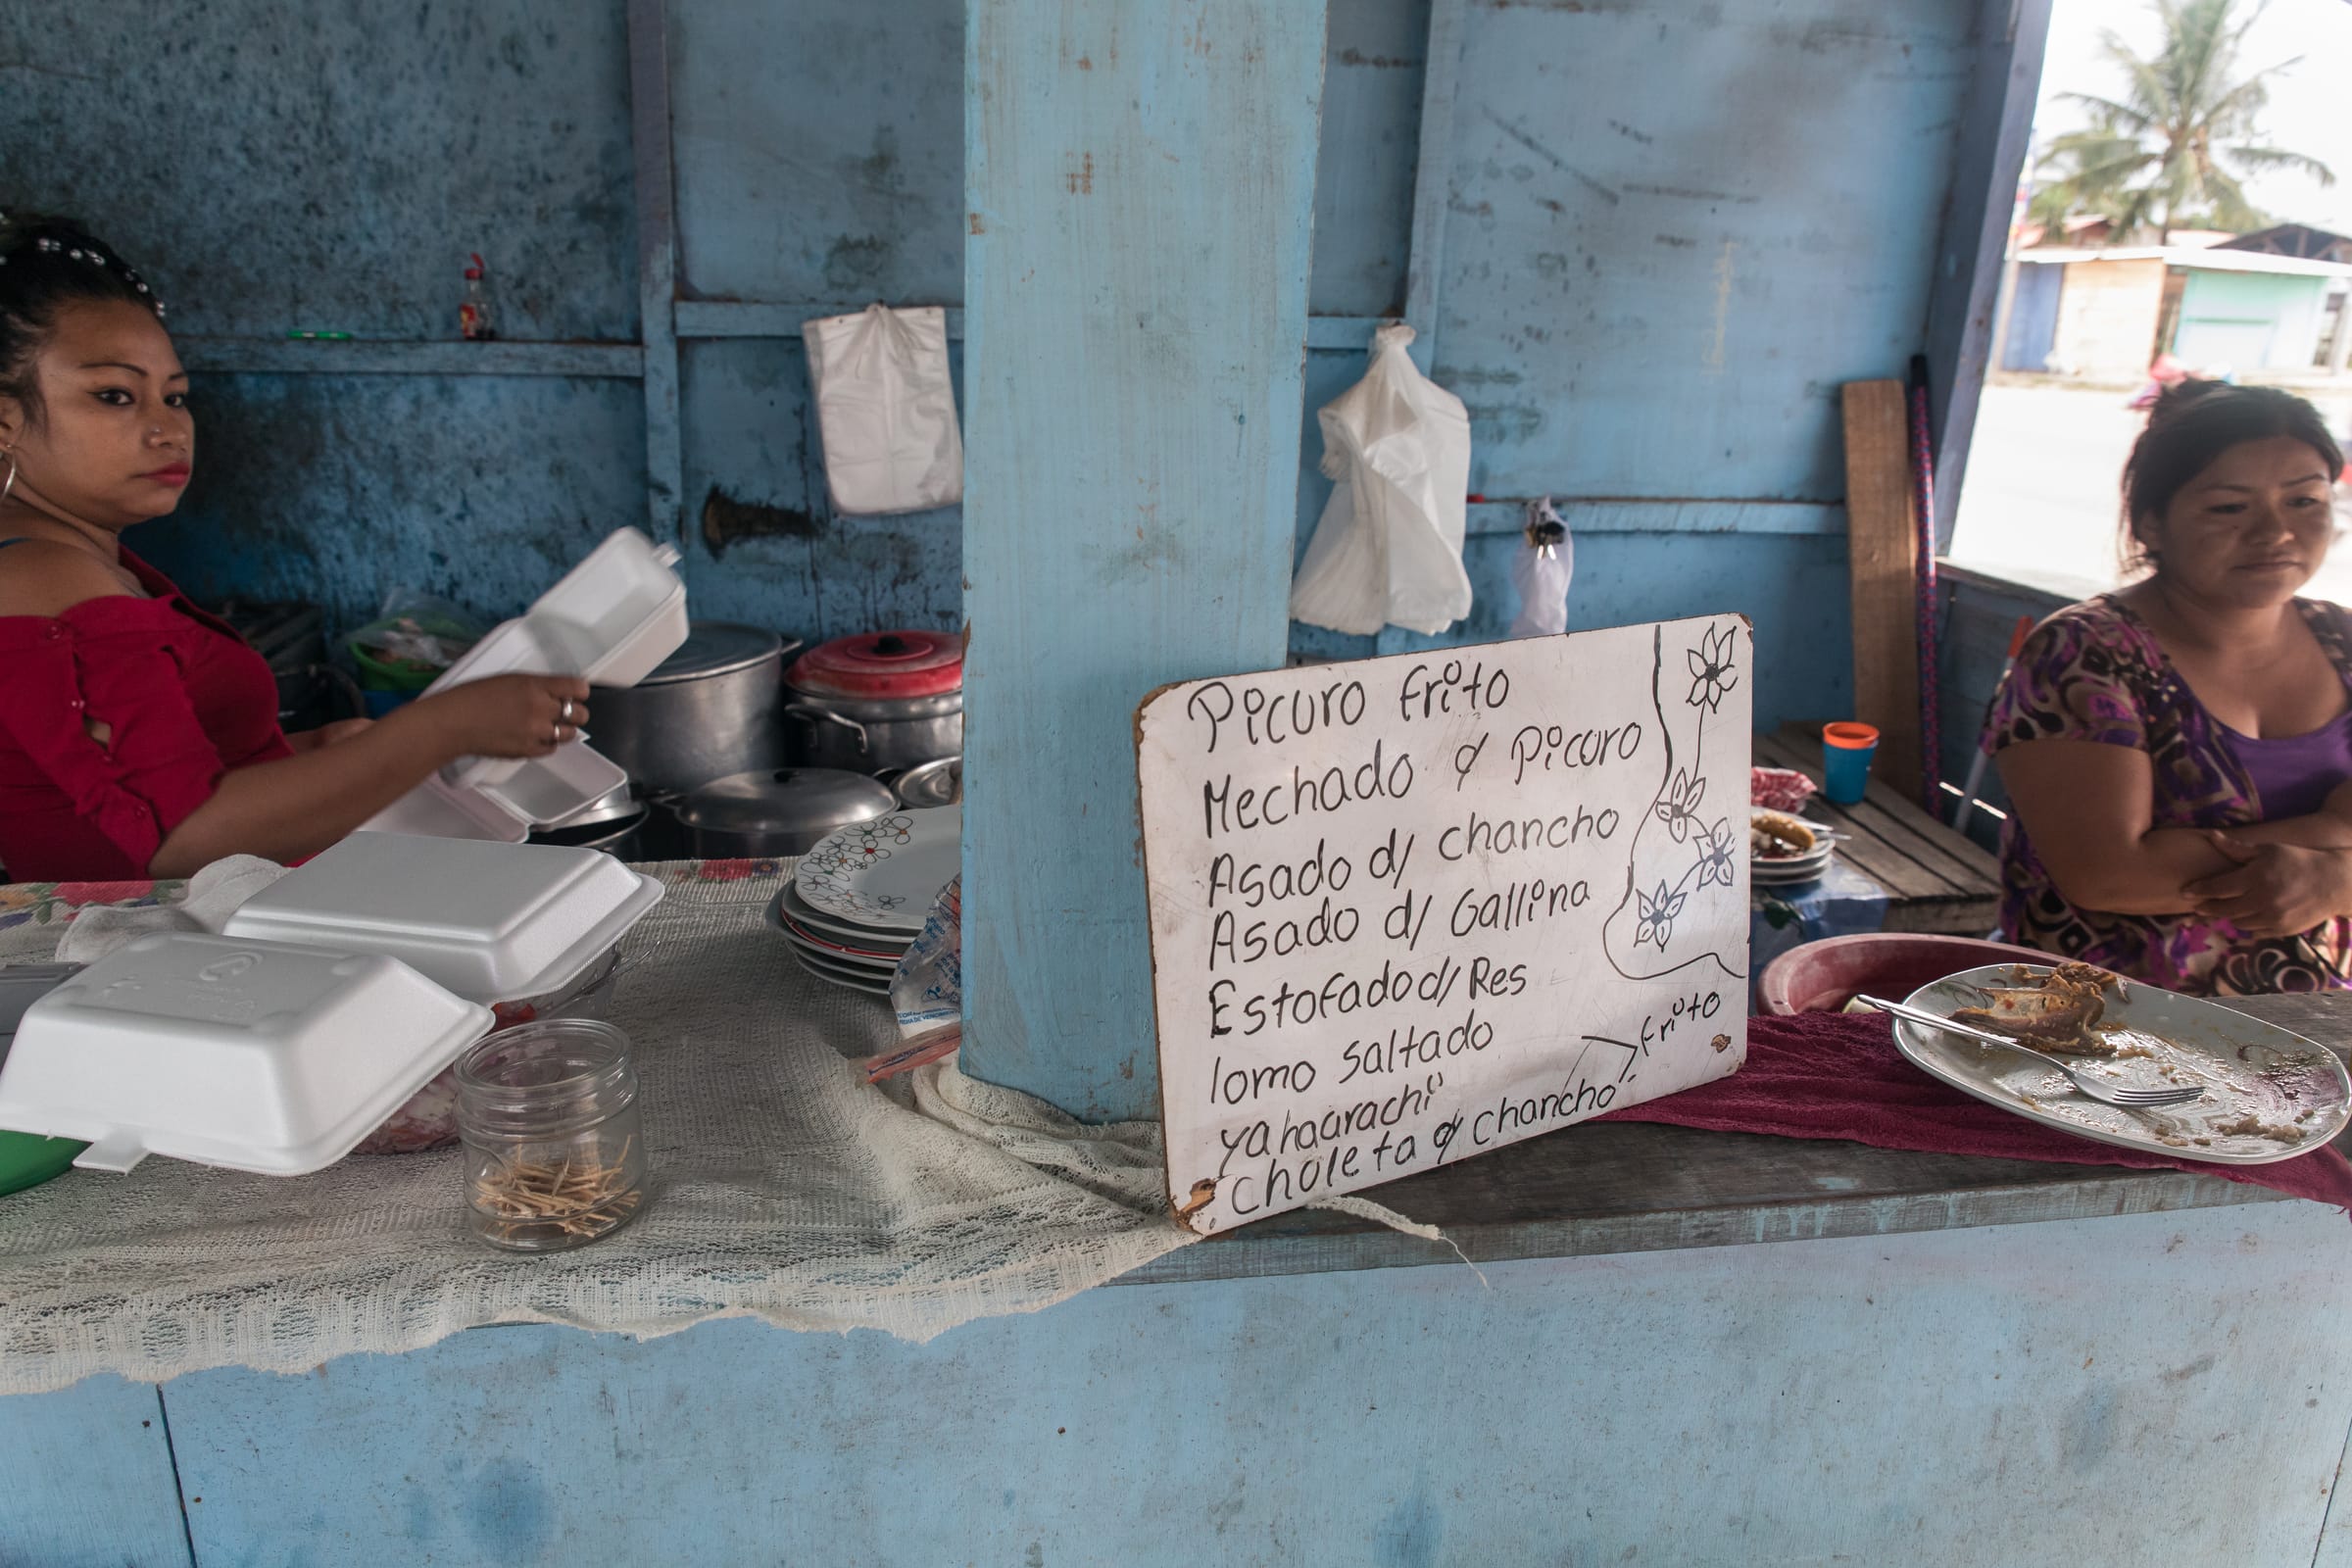 Picuro frito
Mechado d/ Picuro
Asado d/ chancho
Asado d/ Gallina
Estofado d/ Res
lomo saltado
yahuarachi
Chuleta d/ chancho
frito